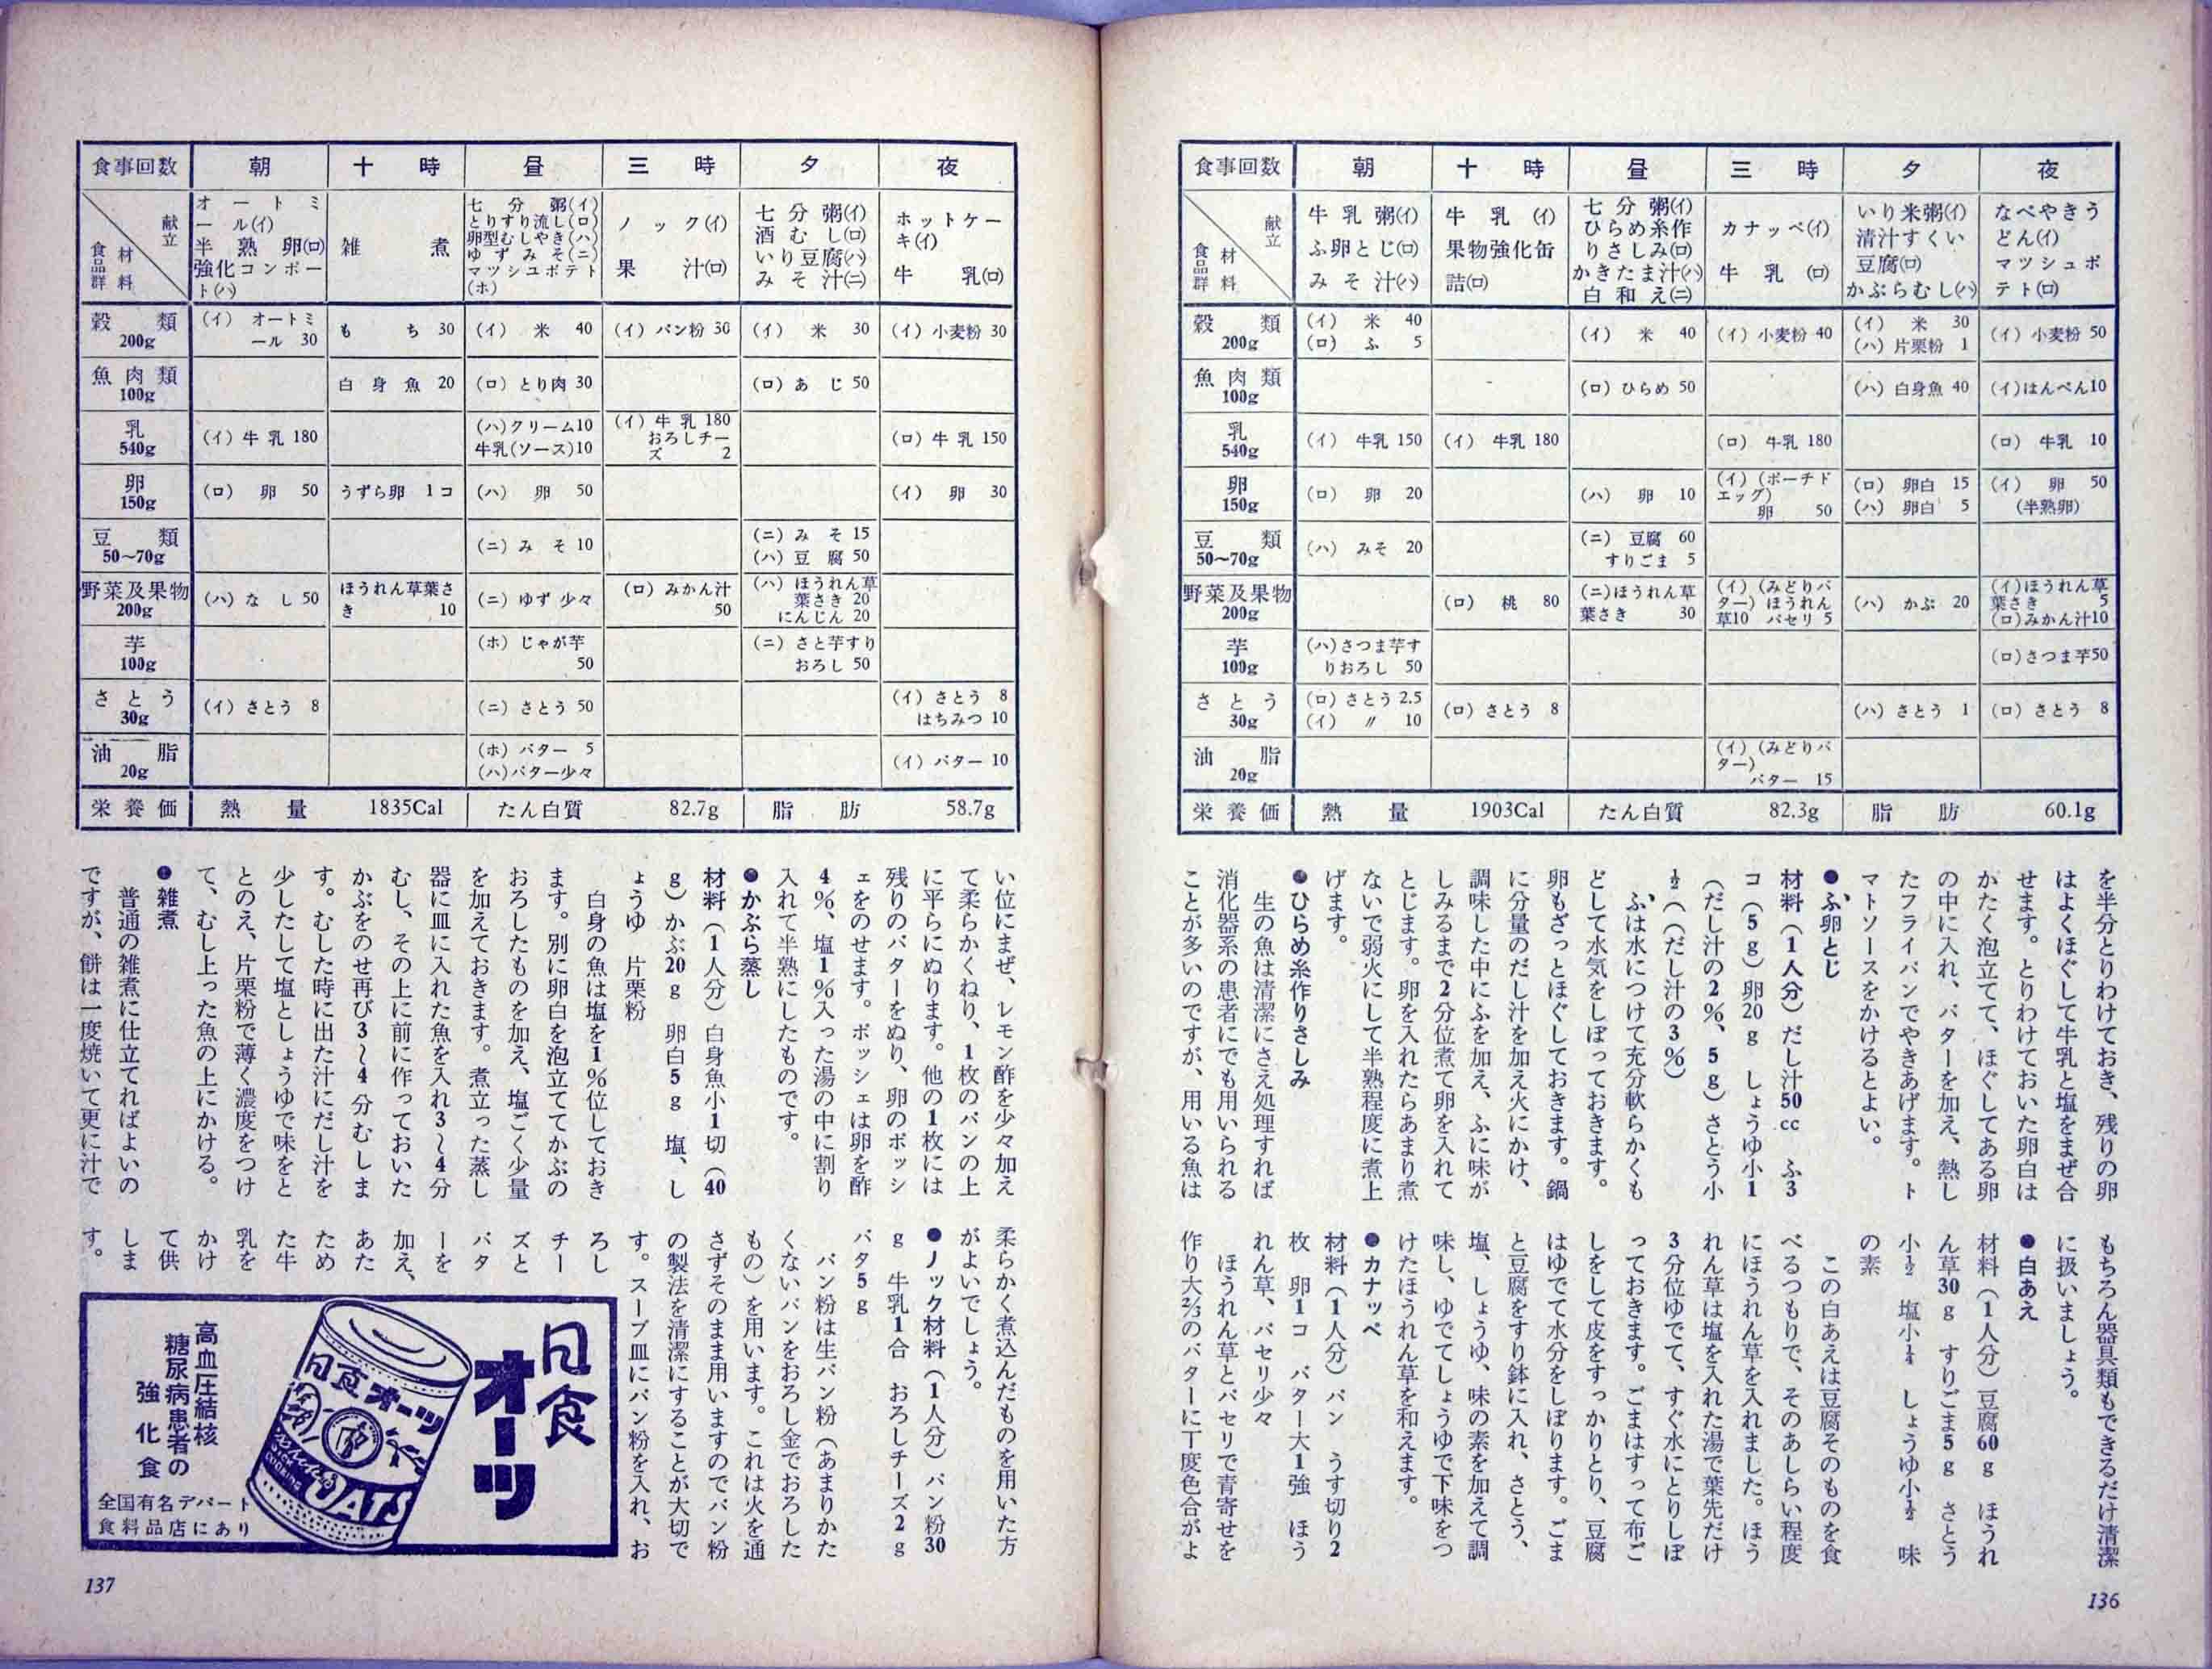 食事回数 朝 十時 昼 三時 夕 夜
献立 材料 食品群
牛乳粥(イ) ふ卵とじ(ロ) みそ汁(ハ)
牛乳(イ) 果物強化缶詰(ロ)
七分粥(イ) ひらめ糸作りさしみ(ロ) かきたま汁(ハ) 白和え(ニ)
カナッペ(イ) 牛乳(ロ)
いり米粥(イ) 清汁すくい豆腐(ロ) かぶらむし(ハ)
なべやきうどん(イ) マツシュポテト(ロ)
穀類 200g (イ) 米 40 (ロ) ふ 5 (イ) 米 40 (イ) 小麦粉 40 (イ) 米 30 (ハ) 片栗粉 1 (イ) 小麦粉 50
魚肉類 100g (ロ) ひらめ 50 (ハ) 白身魚 40 (イ)はんぺん10
乳 540g (イ) 牛乳 150 (イ) 牛乳 180 (ロ) 牛乳 180 (ロ) 牛乳 10
卵 150g (ロ) 卵 20 (ハ) 卵 10 (イ) (ポーチドエッグ) 卵 50 (ロ) 卵白 15 (ハ) 卵白 5 (イ) 卵 50 (半熟卵)
豆類 50〜70g (ハ) みそ 20 (ニ) 豆腐 60 すりごま 5
野菜及果物 200g (ロ) 桃 80 (ニ)ほうれん草葉さき 30 (イ) (みどりバター) ほうれん草10 パセリ 5 (ハ) かぶ 20 (イ)ほうれん草葉さき 5 (ロ)みかん汁10
芋 100g (ハ)さつま芋すりおろし 50 (ロ)さつま芋50
さとう 30g (ロ) さとう 2.5 (イ) 〃 10 (ロ) さとう 8 (ハ) さとう 1 (ロ) さとう 8
油脂 20g (イ) (みどりバター) バター 15
栄養価 熱量 1903Cal たん白質 82.3g 脂肪 60.1g
を半分とりわけておき、残りの卵
はよくほぐして牛乳と塩をまぜ合
せます。とりわけておいた卵白は
かたく泡立てて、ほぐしてある卵
の中に入れ、バターを加え、熱し
たフライパンでやきあげます。ト
マトソースをかけるとよい。
●ふ卵とじ
材料（1人分）だし汁50cc ふ3
コ（5g）卵20g しょうゆ小1
（だし汁の2%、5g）さとう小
½（(だし汁の3%)
ふは水につけて充分軟らかくも
どして水気をしぼっておきます。
卵もざっとほぐしておきます。鍋
に分量のだし汁を加え火にかけ、
調味した中にふを加え、ふに味が
しみるまで2分位煮て卵を入れて
とじます。卵を入れたらあまり煮
ないで弱火にして半熟程度に煮上
げます。
●ひらめ糸作りさしみ
生の魚は清潔にさえ処理すれば
消化器系の患者にでも用いられる
ことが多いのですが、用いる魚は
もちろん器具類もできるだけ清潔
に扱いましょう。
●白あえ
材料（1人分）豆腐60g ほうれ
ん草30g すりごま5g さとう
小½ 塩小¼ しょうゆ小½ 味
の素
この白あえは豆腐そのものを食
べるつもりで、そのあしらい程度
にほうれん草を入れました。ほう
れん草は塩を入れた湯で葉先だけ
3分位ゆでて、すぐ水にとりしぼ
っておきます。ごまはすって布ご
しをして皮をすっかりとり、豆腐
はゆでて水分をしぼります。ごま
と豆腐をすり鉢に入れ、さとう、
塩、しょうゆ、味の素を加えて調
味し、ゆでてしょうゆで下味をつ
けたほうれん草を和えます。
●カナッペ
材料（1人分）パン うす切り2
枚 卵1コ バター大1強 ほう
れん草、パセリ少々
ほうれん草とパセリで青寄せを
作り大⅔のバターに丁度色合がよ
136
食事回数 朝 十時 昼 三時 夕 夜
献立 材料 食品群
オートミール(イ) 半熟卵(ロ) 強化コンポート(ハ)
雑煮
七分粥(イ) とりすり流し(ロ) 卵型むしやき(ハ) ゆずみそ(ニ) マツシユポテト(ホ)
ノック(イ) 果汁(ロ)
七分粥(イ) 酒むし(ロ) いり豆腐(ハ) みそ汁(ニ)
ホットケーキ(イ) 牛乳(ロ)
穀類 200g (イ) オートミール 30 もち 30 (イ) 米 40 (イ) パン粉 30 (イ) 米 30 (イ) 小麦粉 30
魚肉類 100g 白身魚 20 (ロ) とり肉 30 (ロ) あじ 50
乳 540g (イ) 牛乳 180 (ハ)クリーム10 牛乳(ソース)10 (イ) 牛乳 180 おろしチーズ 2 (ロ) 牛乳 150
卵 150g (ロ) 卵 50 うずら卵 1コ (ハ) 卵 50 (イ) 卵 30
豆類 50〜70g (ニ) みそ 10 (ニ) みそ 15 (ハ) 豆腐 50
野菜及果物 200g (ハ) なし 50 ほうれん草葉さき 10 (ニ) ゆず 少々 (ロ) みかん汁 50 (ハ) ほうれん草葉さき 20 にんじん 20
芋 100g (ホ) じゃが芋 50 (ニ) さと芋すりおろし 50
さとう 30g (イ) さとう 8 (ニ) さとう 50 (イ) さとう 8 はちみつ 10
油脂 20g (ホ) バター 5 (ハ)バター少々 (イ) バター 10
栄養価 熱量 1835Cal たん白質 82.7g 脂肪 58.7g
い位にまぜ、レモン酢を少々加え
て柔らかくねり、1枚のパンの上
に平らにぬります。他の1枚には
残りのバターをぬり、卵のポッシ
ェをのせます。ポッシェは卵を酢
4%、塩1%入った湯の中に割り
入れて半熟にしたものです。
●かぶら蒸し
材料（1人分）白身魚小1切（40
g）かぶ20g 卵白5g 塩、し
ょうゆ 片栗粉
白身の魚は塩を1%位しておき
ます。別に卵白を泡立ててかぶの
おろしたものを加え、塩ごく少量
を加えておきます。煮立った蒸し
器に皿に入れた魚を入れ3〜4分
むし、その上に前に作っておいた
かぶをのせ再び3〜4分むしま
す。むした時に出た汁にだし汁を
少したして塩としょうゆで味をと
とのえ、片栗粉で薄く濃度をつけ
て、むし上った魚の上にかける。
●雑煮
普通の雑煮に仕立てればよいの
ですが、餅は一度焼いて更に汁で
柔らかく煮込んだものを用いた方
がよいでしょう。
●ノック材料（1人分）パン粉30
g 牛乳1合 おろしチーズ2g
バタ5g
パン粉は生パン粉（あまりかた
くないパンをおろし金でおろした
もの）を用います。これは火を通
さずそのまま用いますのでパン粉
の製法を清潔にすることが大切で
す。スープ皿にパン粉を入れ、お
ろし
チー
ズと
バタ
ーを
加え、
あた
ため
た牛
乳を
かけ
て供
しま
す。
日食
オーツ
日食オーツ
OATS
高血圧結核
糖尿病患者の
強化食
全国有名デパート
食料品店にあり
137